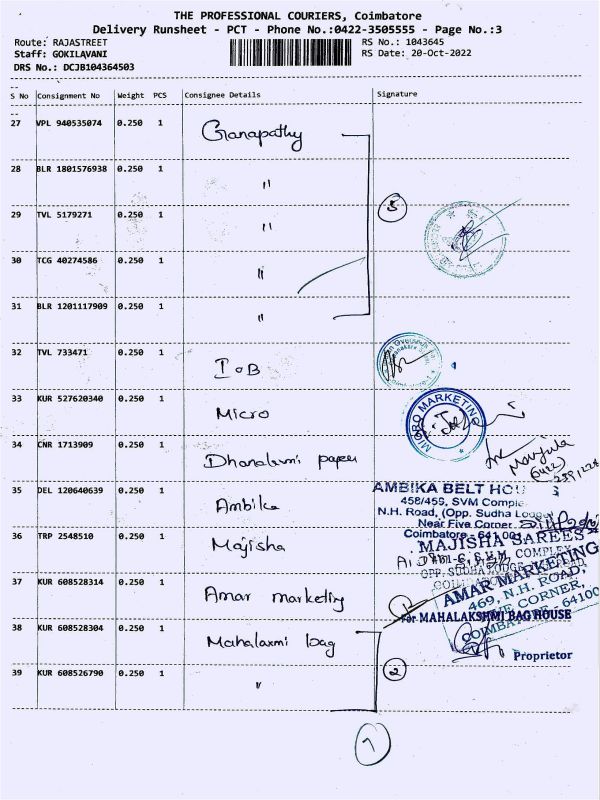 THE PROFESSIONAL COURIERS, Coimbatore
Delivery Runsheet - PCT - Phone No.:0422-3505555 - Page No.:3
Route: RAJASTREET RS No.: 1043645
Staff: GOKILAVANI RS Date: 20-Oct-2022
DRS No.: DCJB104364503
S No Consignment No Weight PCS Consignee Details Signature
27 VPL 940535074 0.250 1 Ganapathy
28 BLR 1801576938 0.250 1 "
29 TVL 5179271 0.250 1 " 5
30 TCG 40274586 0.250 1 "
31 BLR 1201117909 0.250 1 "
32 TVL 733471 0.250 1 IOB
33 KUR 527620340 0.250 1 Micro MICRO MARKETING
34 CNR 1713909 0.250 1 Dhanalaxmi paper Manjula
35 DEL 120640639 0.250 1 Ambika
AMBIKA BELT HOU
458/459, SVM Comple
N.H. Road, (Opp. Sudha
Near Five Corner
Coimbatore - 641 001
36 TRP 2548510 0.250 1 Majisha
MAJISHA SAREES
S.V.M. COMPLEX
OPP. SUDHA
37 KUR 608528314 0.250 1 Amar marketing
AMAR MARKETING
469, N.H. ROAD,
CORNER,
COIMBATORE 64100
38 KUR 608528304 0.250 1 Mahalaxmi bag
For MAHALAKSHMI BAG HOUSE
Proprietor
39 KUR 608526790 0.250 1 " 2
7